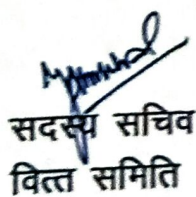 सदस्य सचिव
वित्त समिति